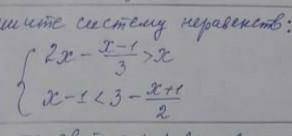 шите систему неравенств:
2x - \frac{x-1}{3} > x
x - 1 < 3 - \frac{x+1}{2}